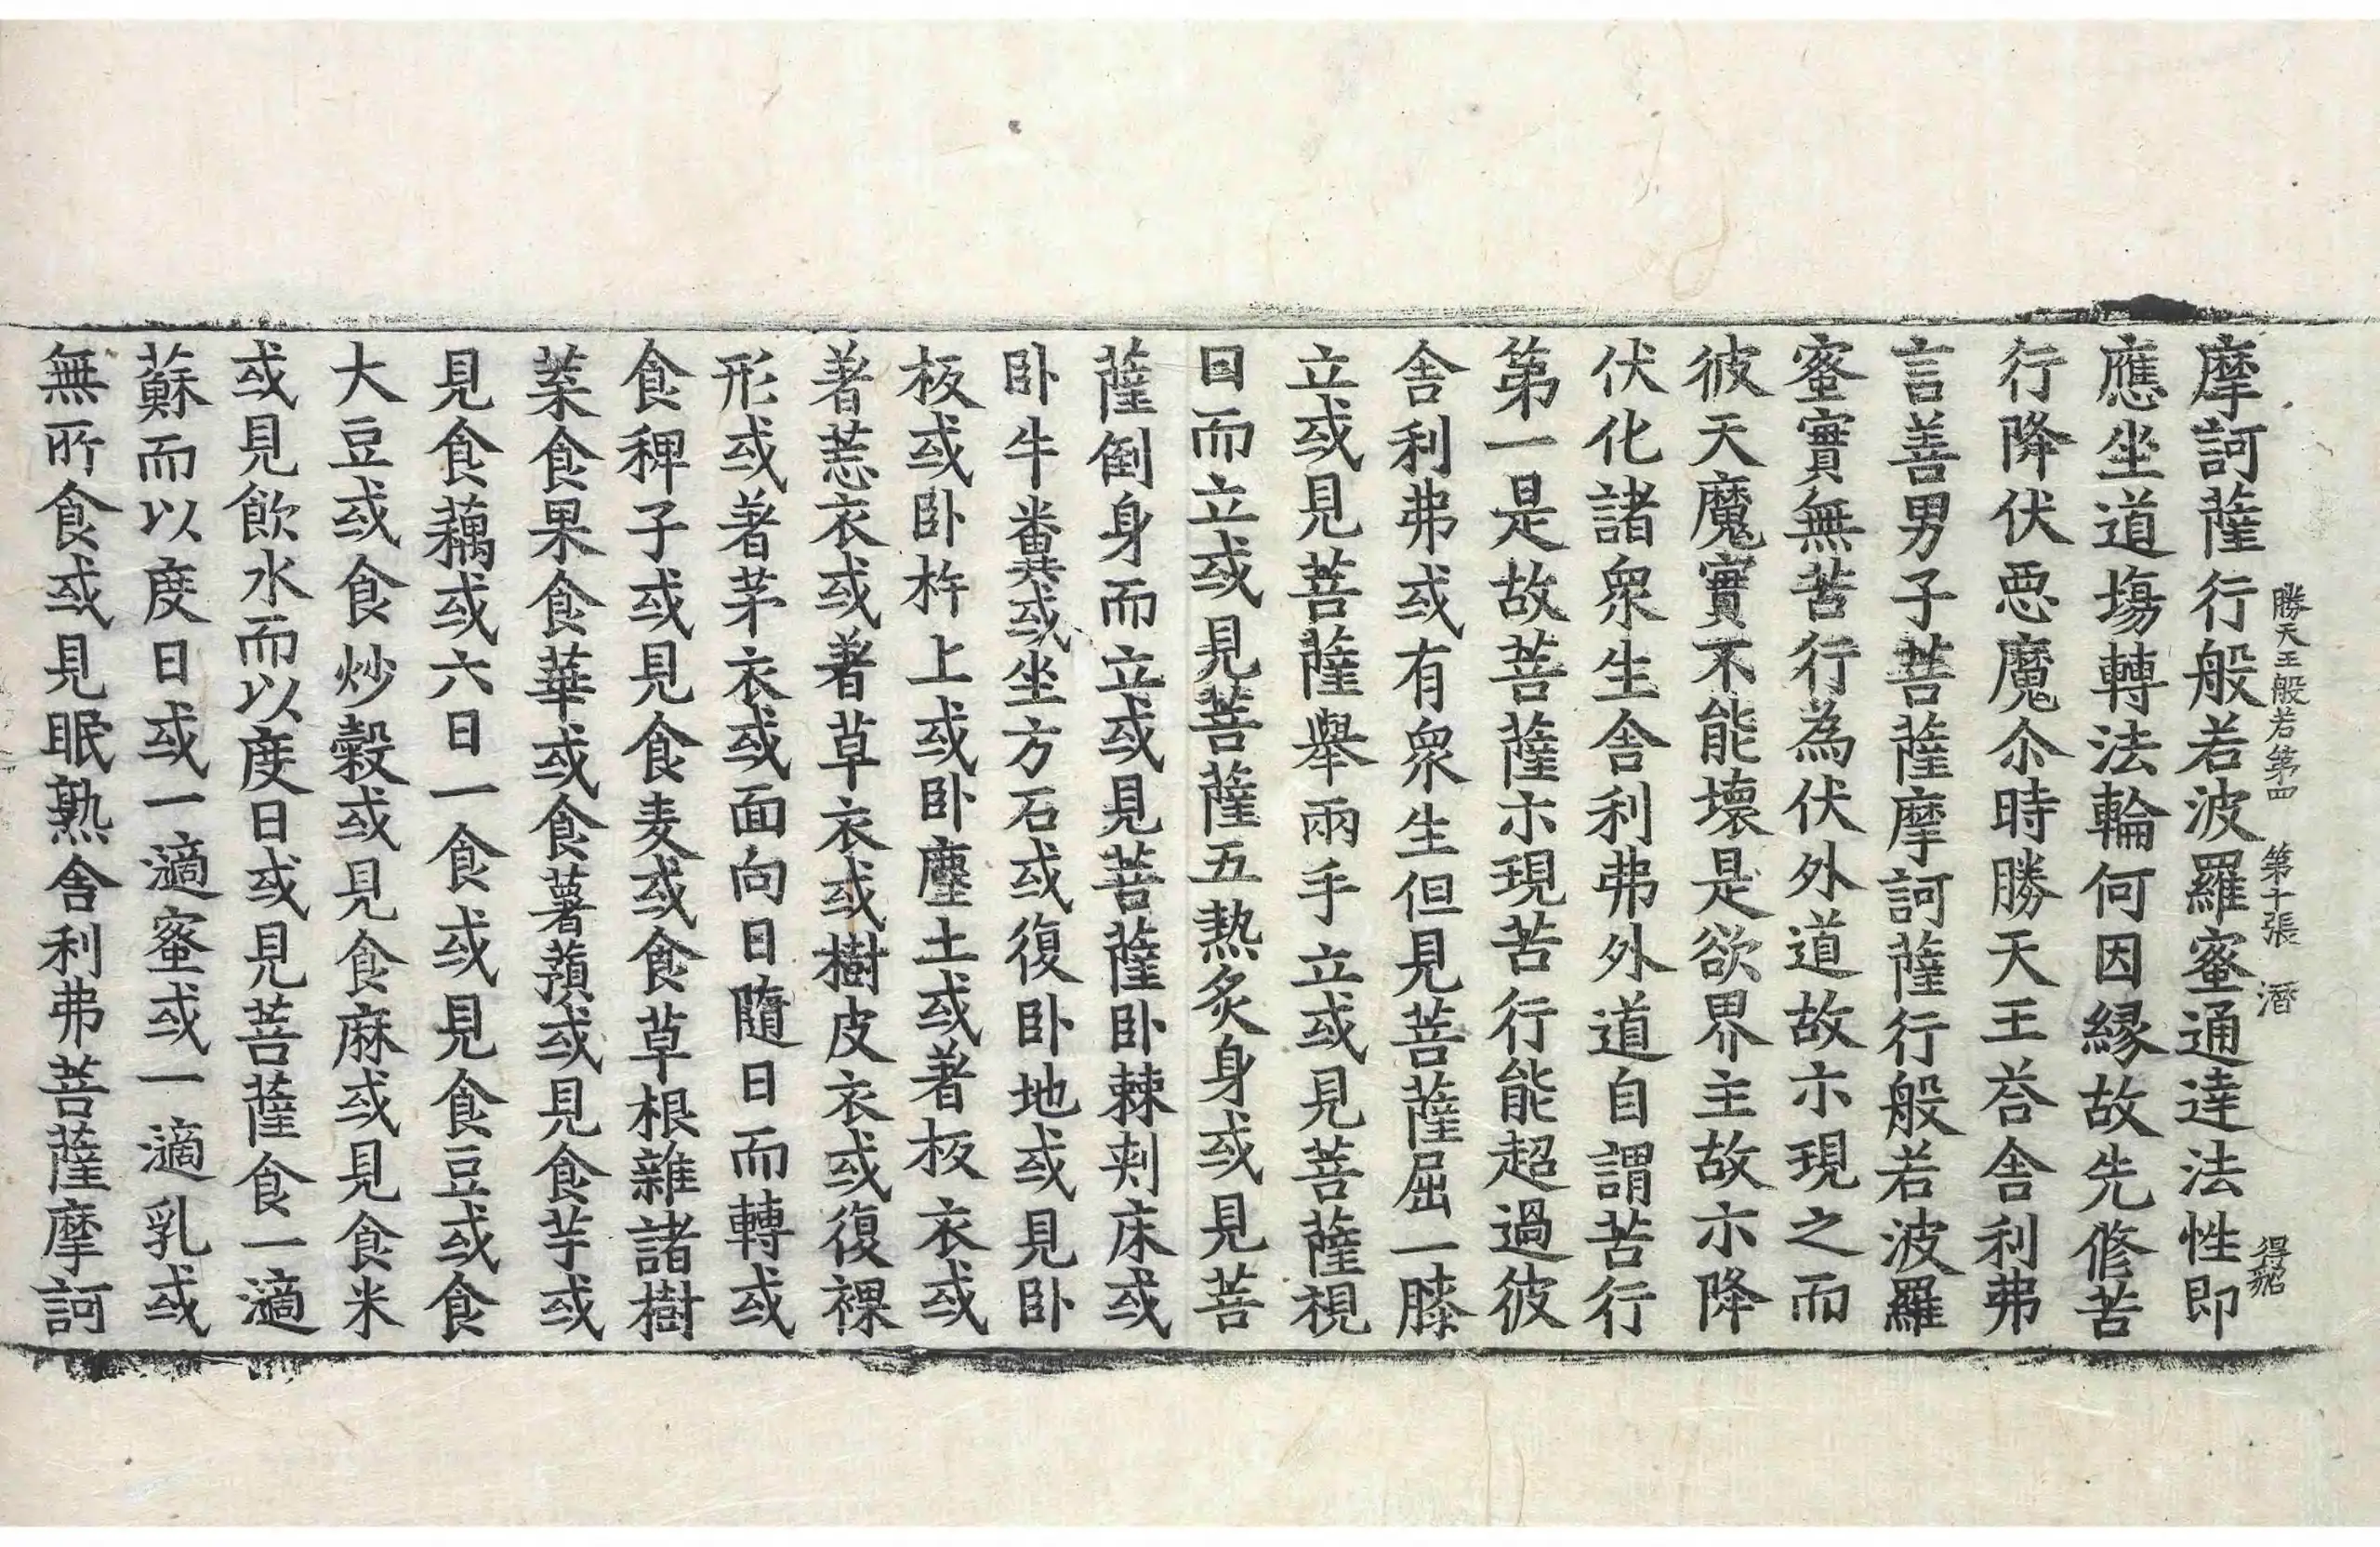 摩訶薩行般若波羅蜜通達法性即
勝天王般若第四 第十張 潛 得䂏
應坐道場轉法輪何因緣故先修苦
行降伏惡魔尒時勝天王荅舍利弗
言善男子菩薩摩訶薩行般若波羅
蜜實無苦行為伏外道故示現之而
彼天魔實不能壞是欲界主故示降
伏化諸衆生舍利弗外道自謂苦行
第一是故菩薩示現苦行能超過彼
舍利弗或有衆生但見菩薩屈一膝
立或見菩薩舉兩手立或見菩薩視
日而立或見菩薩五熱炙身或見菩
薩倒身而立或見菩薩卧棘刺床或
卧牛糞或坐方石或復卧地或見卧
板或卧杵上或卧塵土或著板衣或
著莣衣或著草衣或樹皮衣或復裸
形或著茅衣或面向日隨日而轉或
食稗子或見食麦或食草根雜諸樹
菜食果食華或食薯蕷或見食芋或
見食藕或六日一食或見食豆或食
大豆或食炒糓或見食麻或見食米
或見飲水而以度日或見菩薩食一渧
蘇而以度日或一渧蜜或一渧乳或
無所食或見眠熟舍利弗菩薩摩訶